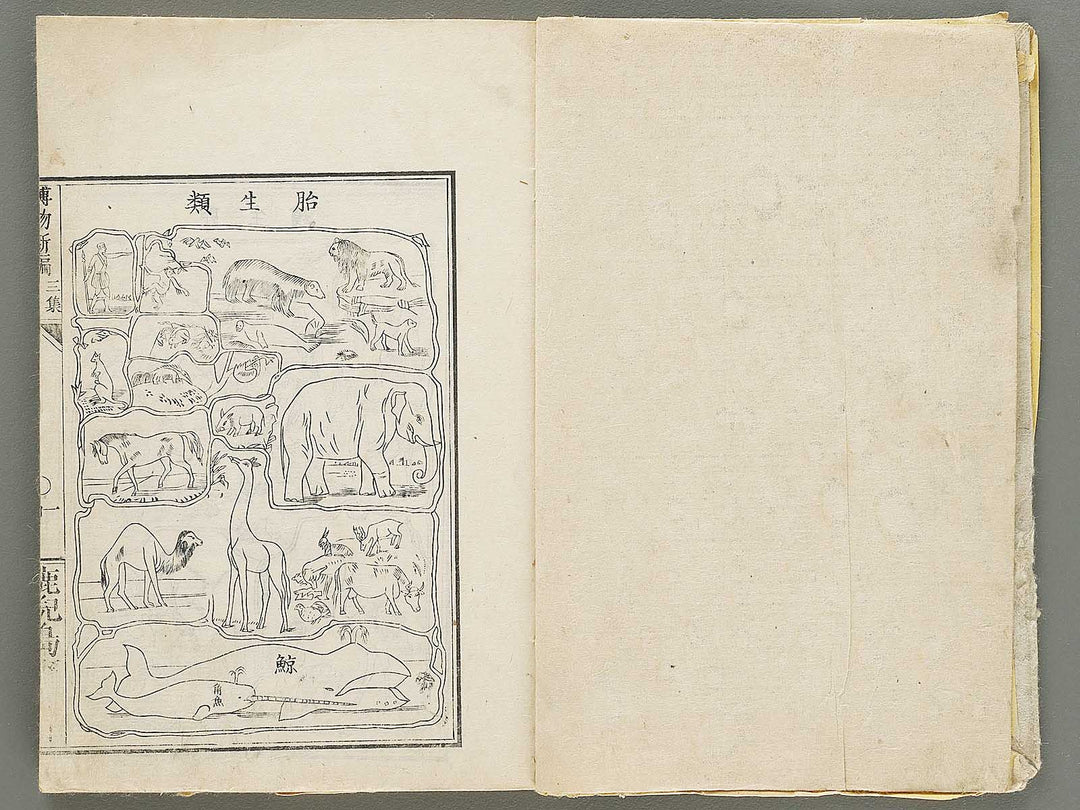 胎生類
鯨
角魚
博物新編 三集
一
鹿兒島